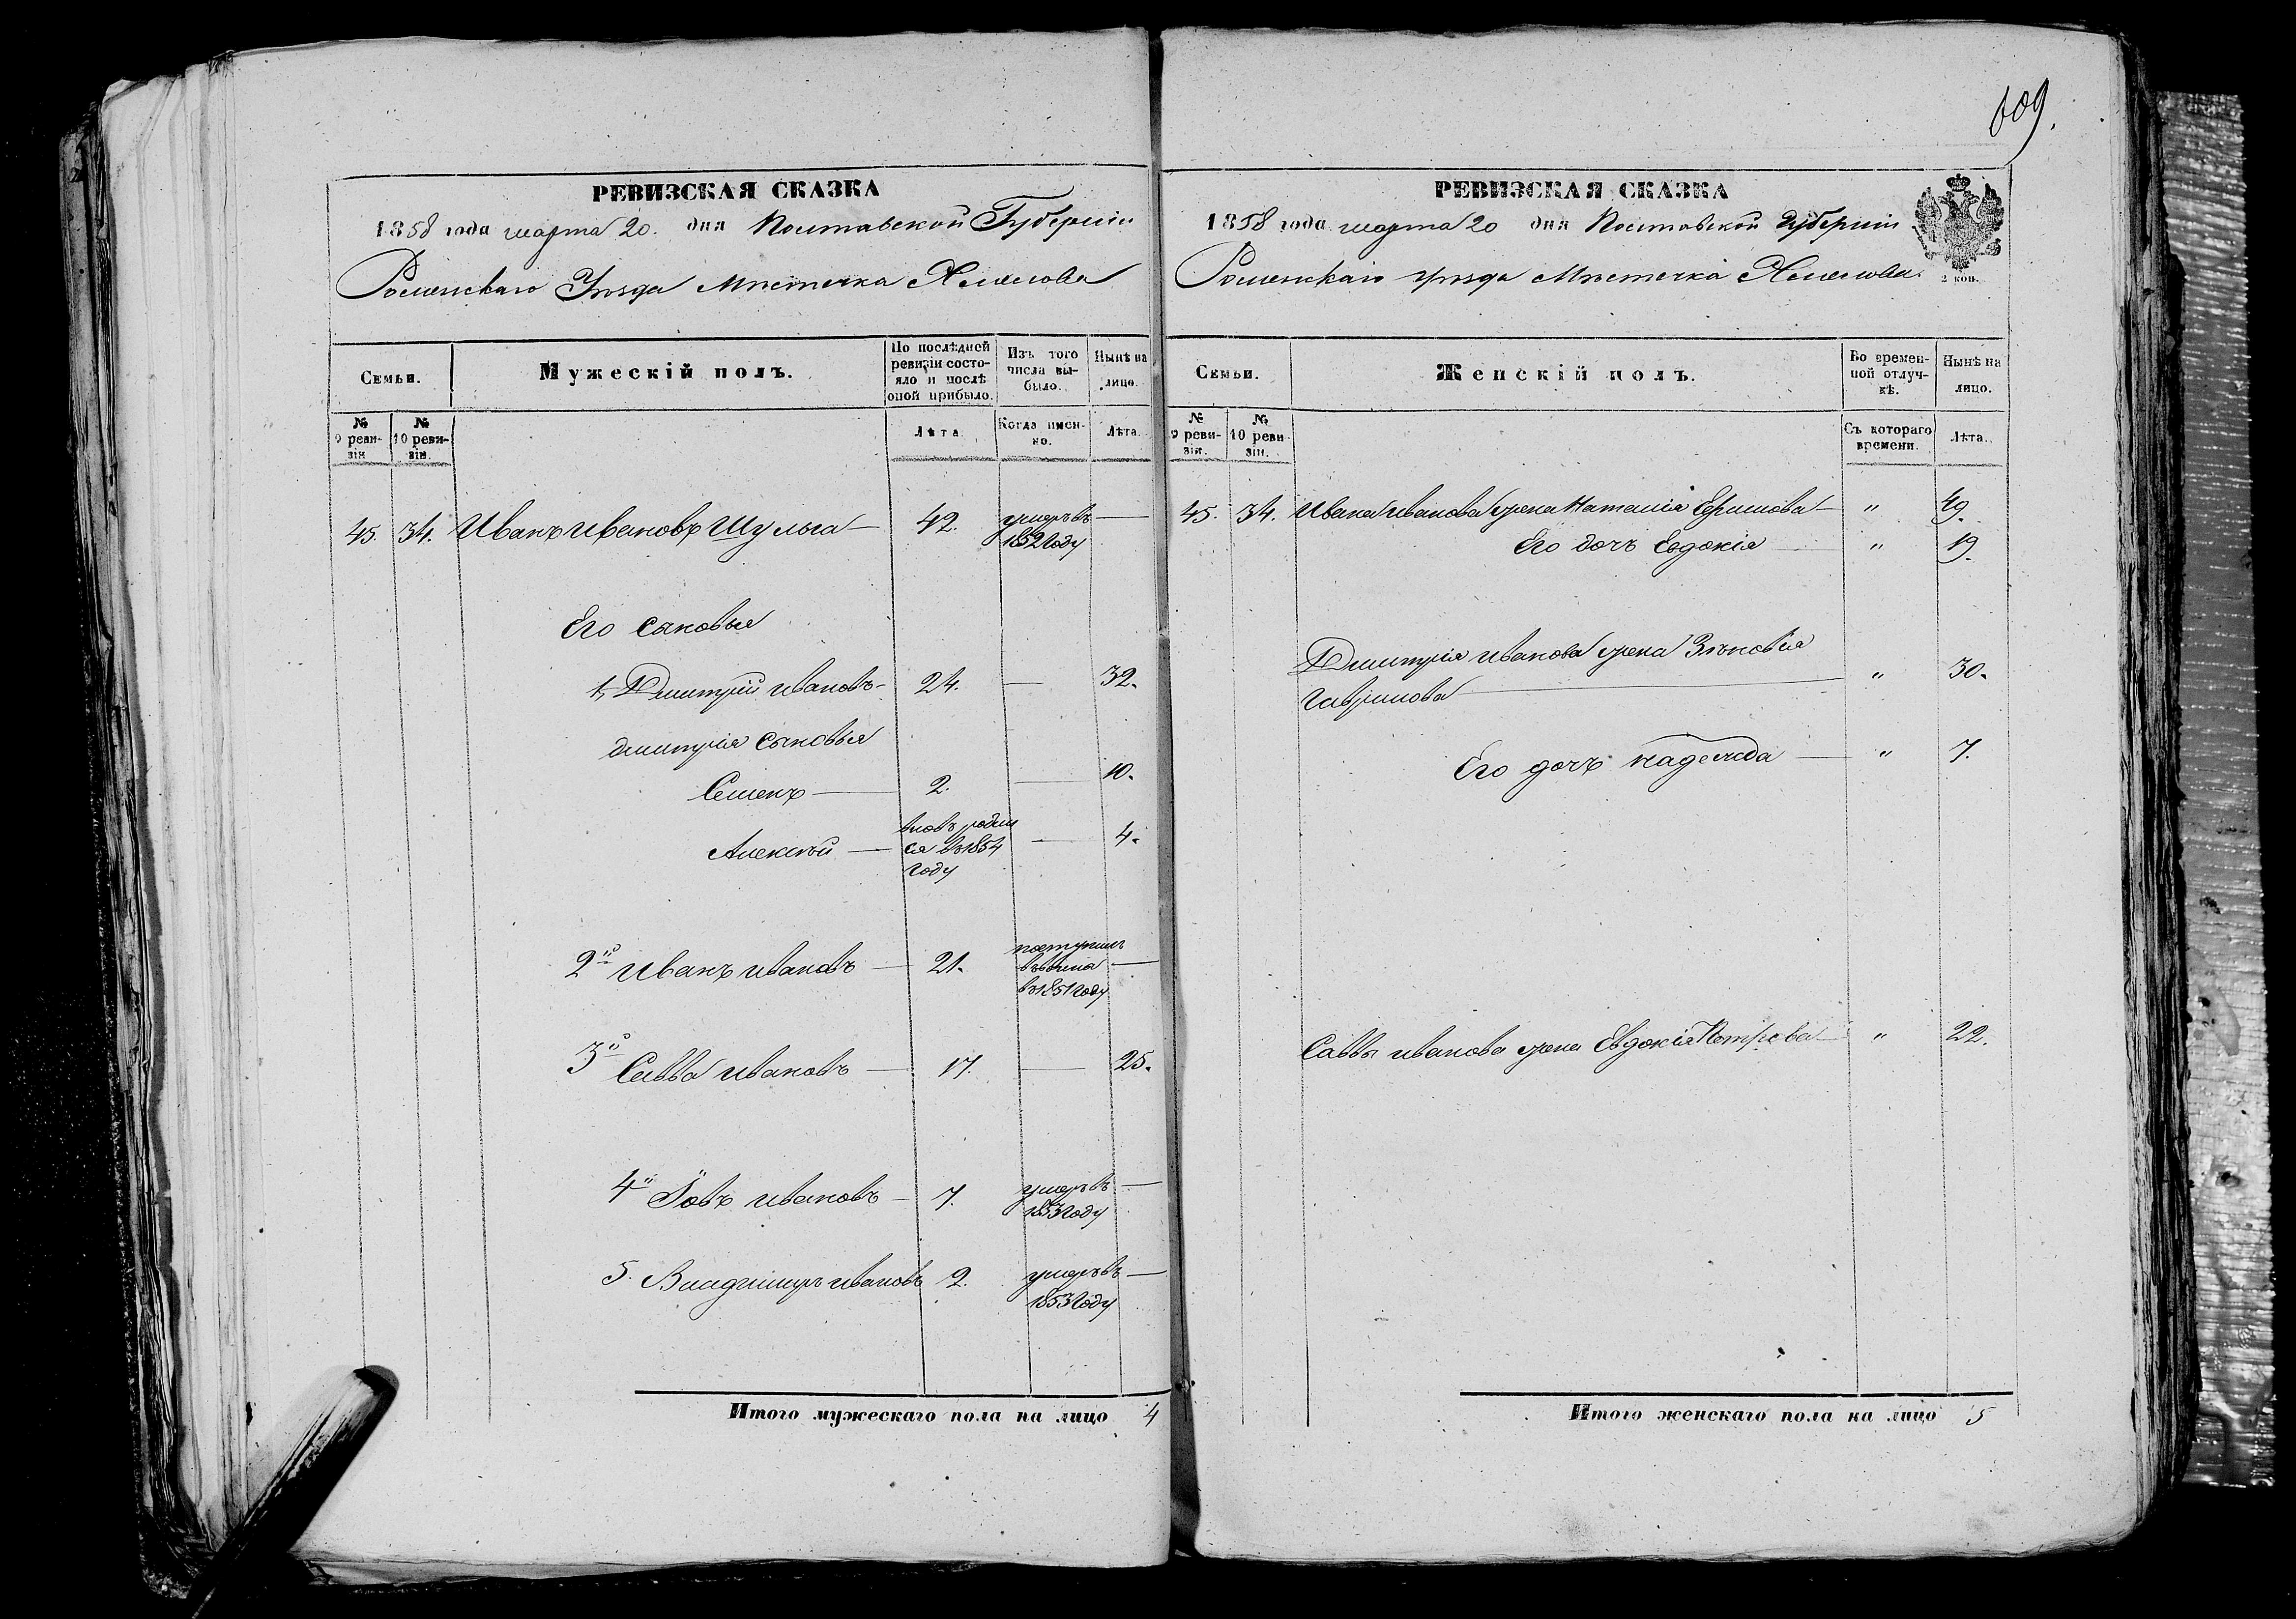 609.
РЕВИЗСКАЯ СКАЗКА
1858 года марта 20. дня Полтавской Губерніи
Роменскаго Уѣзда Мѣстечка Хмелова
Семьи.
Мужескій полъ.
По послѣдней ревизіи состояло и послѣ оной прибыло.
Изъ того числа выбыло.
Нынѣ на лицо.
№ 9 ревизіи
№ 10 ревизіи.
Лѣта
Когда именно.
Лѣта.
45. 34. Иванъ Ивановъ Шульга — 42. умеръ въ 1852 году —
Его сыновья
1, Дмитрій Ивановъ - 24. — 32.
Дмитрія сыновья
Семенъ — 2. — 10.
Алексѣй — вновь родился въ 1854 году — 4.
2й Иванъ Ивановъ — 21. въ 1851 году —
3й Савва Ивановъ — 17. — 25.
4й Іовъ Ивановъ — 7. умеръ въ 1853 году —
5. Владиміръ Ивановъ 2. умеръ въ 1853 году —
Итого мужескаго пола на лицо 4
РЕВИЗСКАЯ СКАЗКА
1858 года марта 20 дня Полтавской Губерніи
Роменскаго уѣзда Мѣстечка Хмелова
2 коп.
Семьи.
Женскій полъ.
Во временной отлучкѣ.
Нынѣ на лицо.
№ 9 ревизіи.
№ 10 ревизіи.
Съ котораго времени.
Лѣта.
45. 34. Ивана Иванова жена Наталія Ефимова — " 49.
Его дочь Евдокія — " 19.
Дмитрія Иванова жена Зѣновія
Гаврилова — " 30.
Его дочь Надежда — " 7.
Саввы Иванова жена Евдокія Петрова — " 22.
Итого женскаго пола на лицо 5